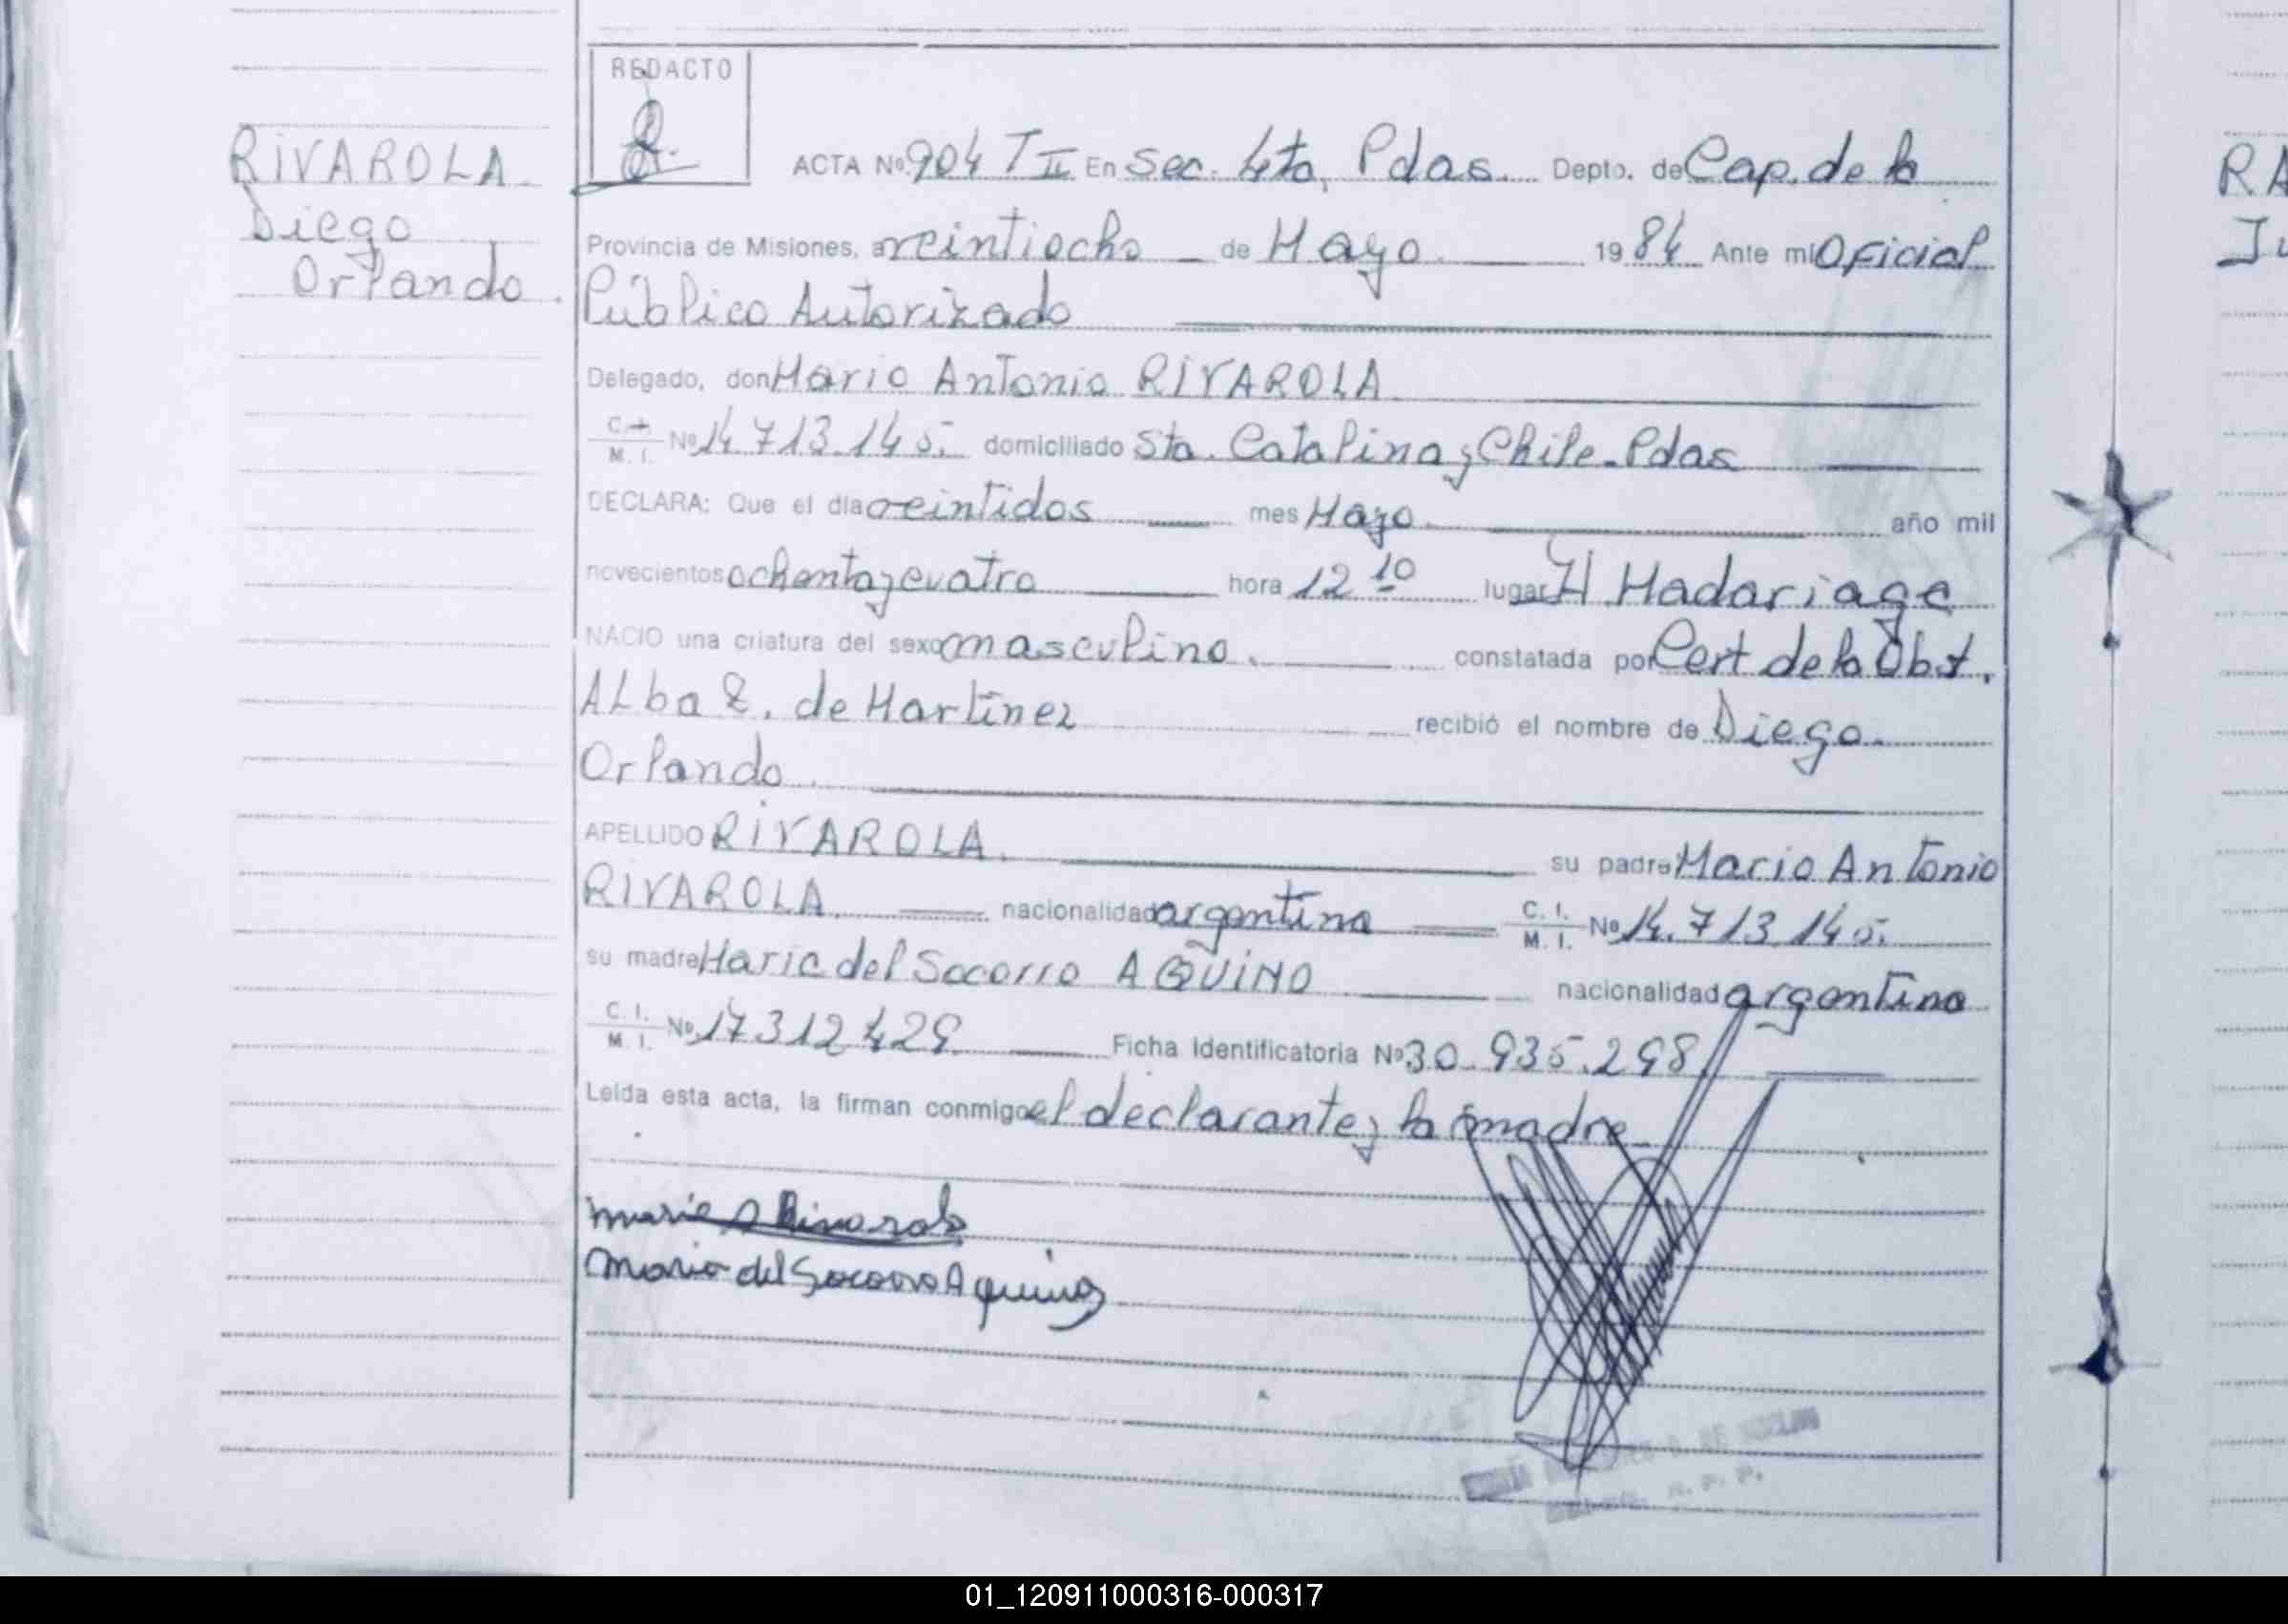 REDACTO
RIVAROLA
Diego
Orlando.
ACTA Nº 904 T II En Sec. 4ta, Pdas. Depto. de Cap. de la
Provincia de Misiones, a veintiocho de Mayo 1984 Ante mi Oficial
Público Autorizado
Delegado, don Mario Antonio RIVAROLA
C. I. M. I. Nº 14.713.145. domiciliado Sta. Catalina y Chile. Pdas
DECLARA: Que el día veintidos mes Mayo año mil
novecientos ochenta y cuatro hora 12 10 lugar H Madariaga
NACIO una criatura del sexo masculino. constatada por Cert de la Obst.
Alba Z. de Martínez recibió el nombre de Diego
Orlando.
APELLIDO RIVAROLA. su padre Mario Antonio
RIVAROLA. nacionalidad argentina C. I. M. I. Nº 14.713.145.
su madre Maria del Socorro AQUINO nacionalidad argentina
C. I. M. I. Nº 17312429 Ficha Identificatoria Nº 30.935.298
Leída esta acta, la firman conmigo el declarante y la madre
Mario A Rivarola
Maria del Socorro Aquino
RA
Ju
01_120911000316-000317